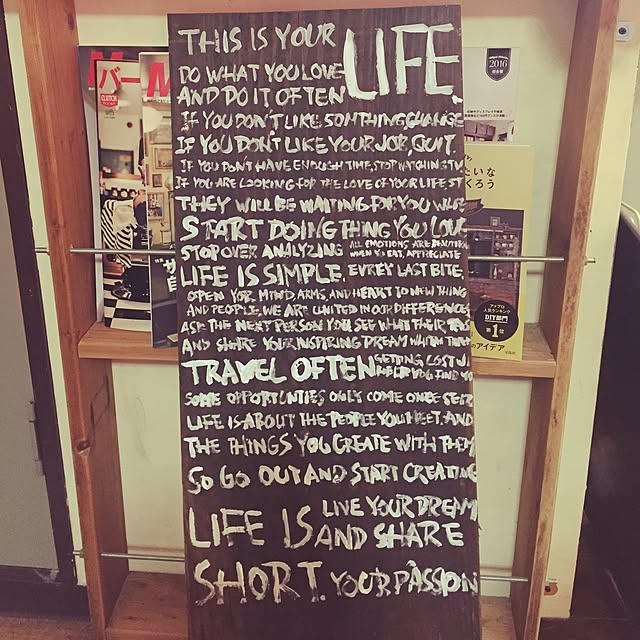 THIS IS YOUR LIFE.
DO WHAT YOU LOVE
AND DO IT OFTEN
IF YOU DON'T LIKE SOMTHING CHANGE
IF YOU DON'T LIKE YOUR JOB, QUIT.
IF YOU DON'T HAVE ENOUGH TIME, STOP WATCHING TV
IF YOU ARE LOOKING FOR THE LOVE OF YOUR LIFE ST
THEY WILL BE WAITING FOR YOU
START DOING THING YOU LOVE
STOP OVER ANALYZING
ALL EMOTIONS ARE BEAUTIFU
WHEN YOU EAT, APPRECIATE
LIFE IS SIMPLE
EVREY LAST BITE,
OPEN YOR MIND, ARMS, AND HEART TO NEW THING
AND PEOPLE, WE ARE UNITED IN OUR DIFFERENCE
ASK THE NEXT PERSON YOU SEE WHAT THEIR
AND SHARE YOUR INSPIRING DREAM WITH THEM
TRAVEL OFTEN
GETTING LOST
HELP YOU FIND YO
SOME OPPORTUNTIES ONLY COME ONCE SEIZ
LIFE IS ABOUT THE PEOPLE YOU MEET, AND
THE THINGS YOU CREATE WITH THEM
SO GO OUT AND START CREATING
LIFE IS
LIVE YOUR DREAM
AND SHARE
SHORT.
YOUR PASSION
CLUTCH
バー
M
2016
たいな
くろう
DIY部門
第1位
のアイデア